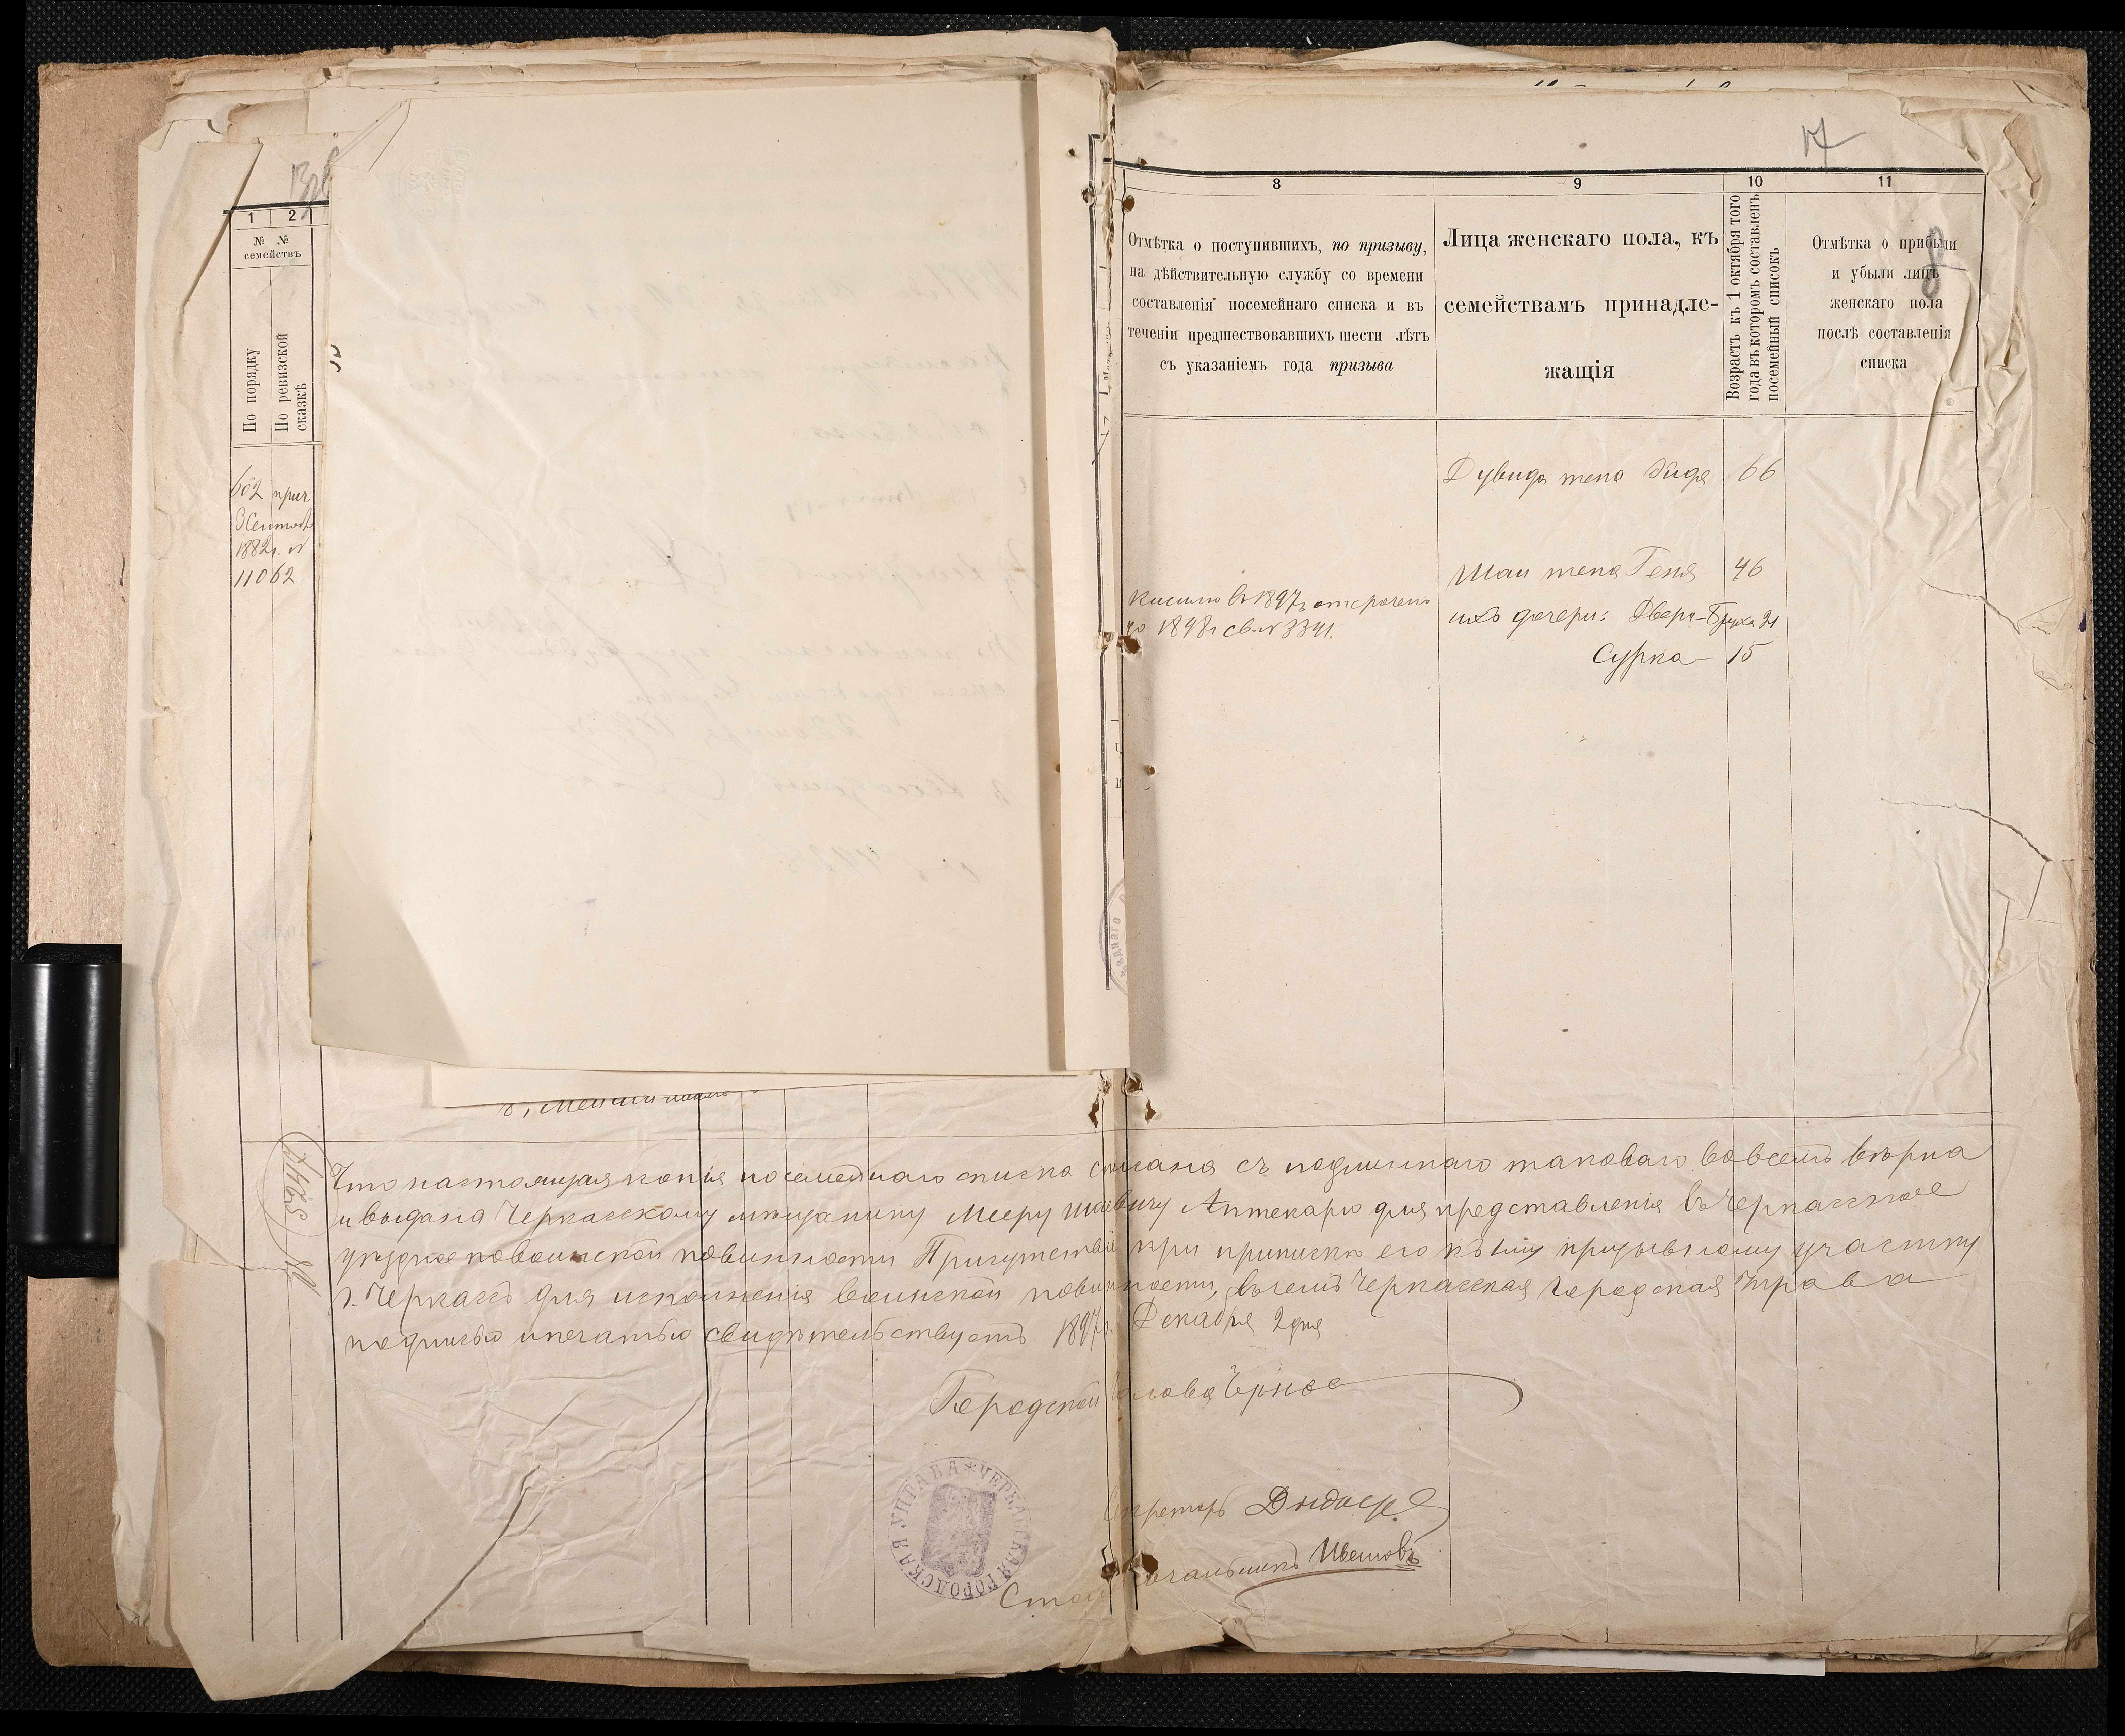 17
1 2
№ №
семействъ
По порядку
По ревизской
сказкѣ
602 прич
3 Сентяб
1882г. №
11062
8 9 10 11
Отмѣтка о поступившихъ, по призыву,
на дѣйствительную службу со времени
составленія посемейнаго списка и въ
теченіи предшествовавшихъ шести лѣтъ
съ указаніемъ года призыва
Лица женскаго пола, къ
семействамъ принадле-
жащія
Возрастъ къ 1 октября того
года въ которомъ составленъ
посемейный списокъ
Отмѣтка о прибыли
и убыли лицъ
женскаго пола
послѣ составленія
списка
8
Дувида жена Хидя 66
Шаи жена Геня 46
ихъ дочери: Двера-Бруха 21
Сурка 15
въ 1897г отсрочено
до 1898г св. № 3341.
Что настоящая копія посемейнаго списка списана съ подлиннаго таковаго во всемъ вѣрна
и выдана Черкасскому мѣщанину Мееру Шаевичу Аптекарю для представленія въ Черкасское
уѣздное по воинской повинности Присутствіе при припискѣ его къ призывному участку
г. Черкасъ для исполненія воинской повинности, въ чемъ Черкасская Городская Управа
подписью и печатью свидѣтельствуетъ 1897г. Декабря 2 дня
Городской Голова
ЧЕРКАССКАЯ ГОРОДСКАЯ УПРАВА
Секретарь
Столоначальникъ